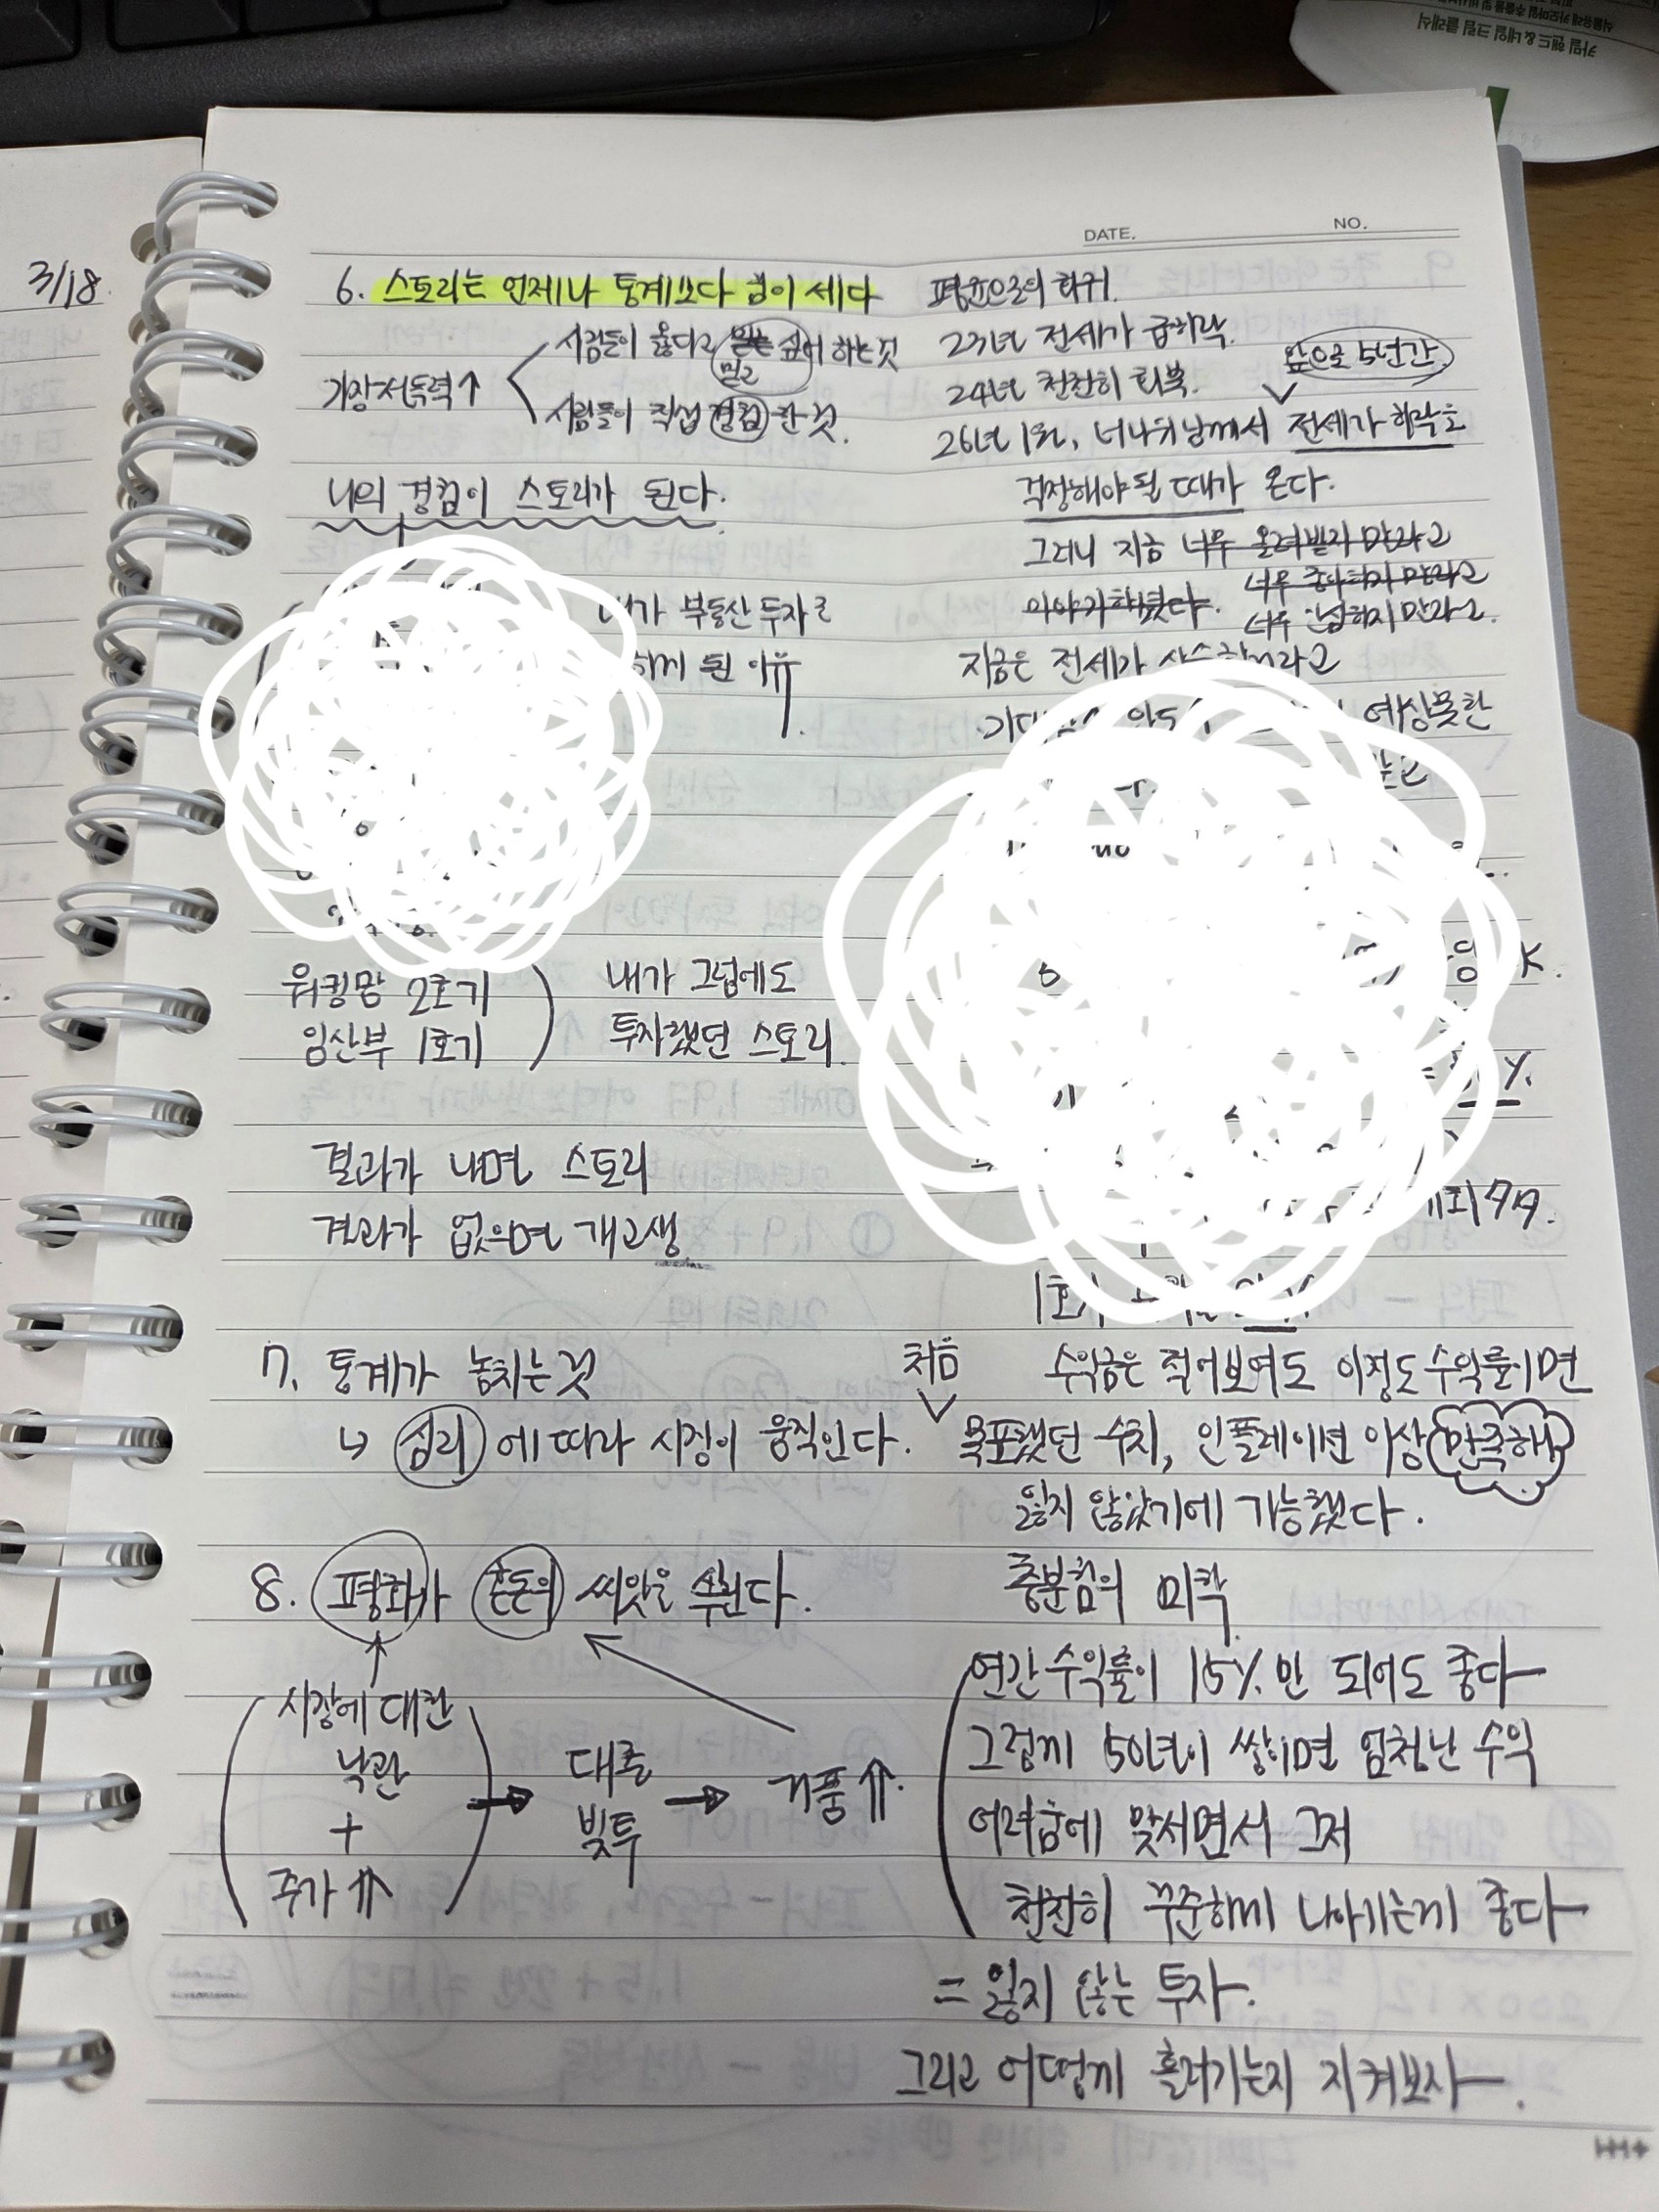 카밀 핸드&네일 크림 클래식
3/18.
DATE.
NO.
6. 스토리는 언제나 통계보다 힘이 세다
가장 설득력↑
사람들이 옳다고 믿고 싶어 하는 것
사람들이 직접 경험한 것.
나의 경험이 스토리가 된다.
내가 부동산 투자를
하게 된 이유
워킹맘 2호기
임산부 1호기
내가 그럼에도
투자했던 스토리.
결과가 나면 스토리
결과가 없으면 개고생
7. 통계가 놓치는 것
↳ 심리에 따라 시장이 움직인다.
8. 평화가 혼돈의 씨앗을 뿌린다.
시장에 대한
낙관
+
주가⇈
→ 대출
빚투
→ 거품⇈.
평균으로의 회귀.
23년 전세가 급하락.
24년 천천히 회복.
앞으로 5년간
26년 1월, 너나위님께서 전세가 하락을
걱정해야될 때가 온다.
그러니 지금 너무 올려받지 말라고
너무 좋아하지 말라고
이야기하셨다.
너무 낙심하지 말라고.
지금은 전세가 상승
예상못한
1호기
처음
수익금은 적어보여도 이정도 수익률이면
목표했던 수치, 인플레이션 이상 만족해
잃지 않았기에 가능했다.
충분함의 미학
연간 수익률이 15%만 되어도 좋다
그렇게 50년이 쌓이면 엄청난 수익
어려움에 맞서면서 그저
천천히 꾸준하게 나아가는게 좋다
= 잃지 않는 투자.
그리고 어떻게 흘러가는지 지켜보자.